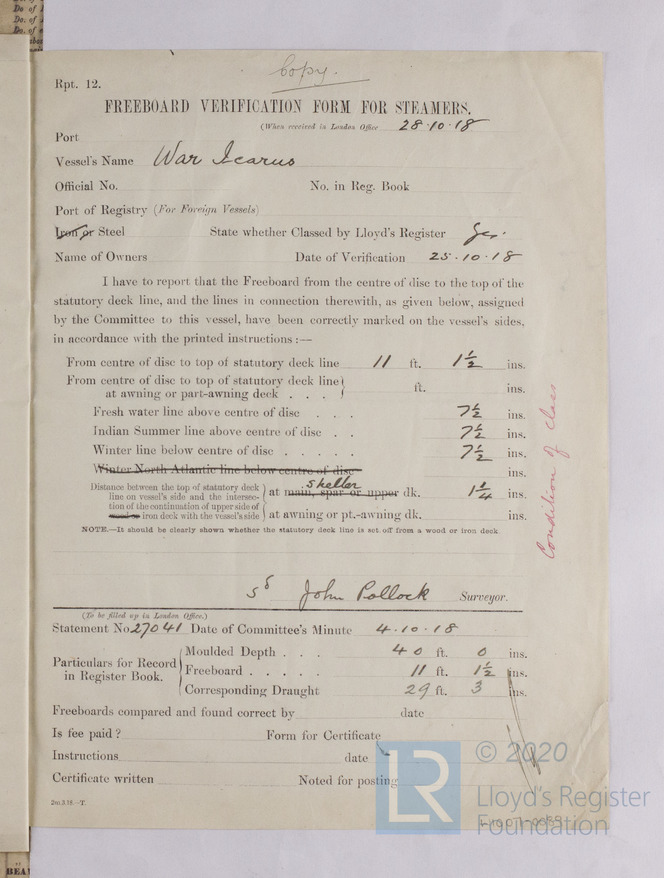 Copy.
Rpt. 12.
FREEBOARD VERIFICATION FORM FOR STEAMERS.
(When received in London Office 28·10·18
Port
Vessel's Name War Icarus
Official No. No. in Reg. Book
Port of Registry (For Foreign Vessels)
Iron or Steel State whether Classed by Lloyd's Register Yes.
Name of Owners Date of Verification 25·10·18
I have to report that the Freeboard from the centre of disc to the top of the
statutory deck line, and the lines in connection therewith, as given below, assigned
by the Committee to this vessel, have been correctly marked on the vessel's sides,
in accordance with the printed instructions :—
From centre of disc to top of statutory deck line 11 ft. 1½ ins.
From centre of disc to top of statutory deck line
at awning or part-awning deck . . . ft. ins.
Fresh water line above centre of disc . . . 7½ ins.
Indian Summer line above centre of disc . . 7½ ins.
Winter line below centre of disc . . . . . 7½ ins.
Winter North Atlantic line below centre of disc ins.
Distance between the top of statutory deck
line on vessel's side and the intersec-
tion of the continuation of upper side of
wood or iron deck with the vessel's side
shelter
at main, spar or upper dk. 1¼ ins.
at awning or pt.-awning dk. ins.
NOTE.—It should be clearly shown whether the statutory deck line is set off from a wood or iron deck
Condition of Class
sd John Pollock Surveyor.
(To be filled up in London Office.)
Statement No 27041 Date of Committee's Minute 4·10·18
Particulars for Record
in Register Book.
Moulded Depth . . . 40 ft. 0 ins.
Freeboard . . . . . 11 ft. 1½ ins.
Corresponding Draught 29 ft. 3 ins.
Freeboards compared and found correct by date
Is fee paid? Form for Certificate
Instructions date
Certificate written Noted for posting
2m.3.18.—T.
LR
© 2020
Lloyd's Register
Foundation
BEA